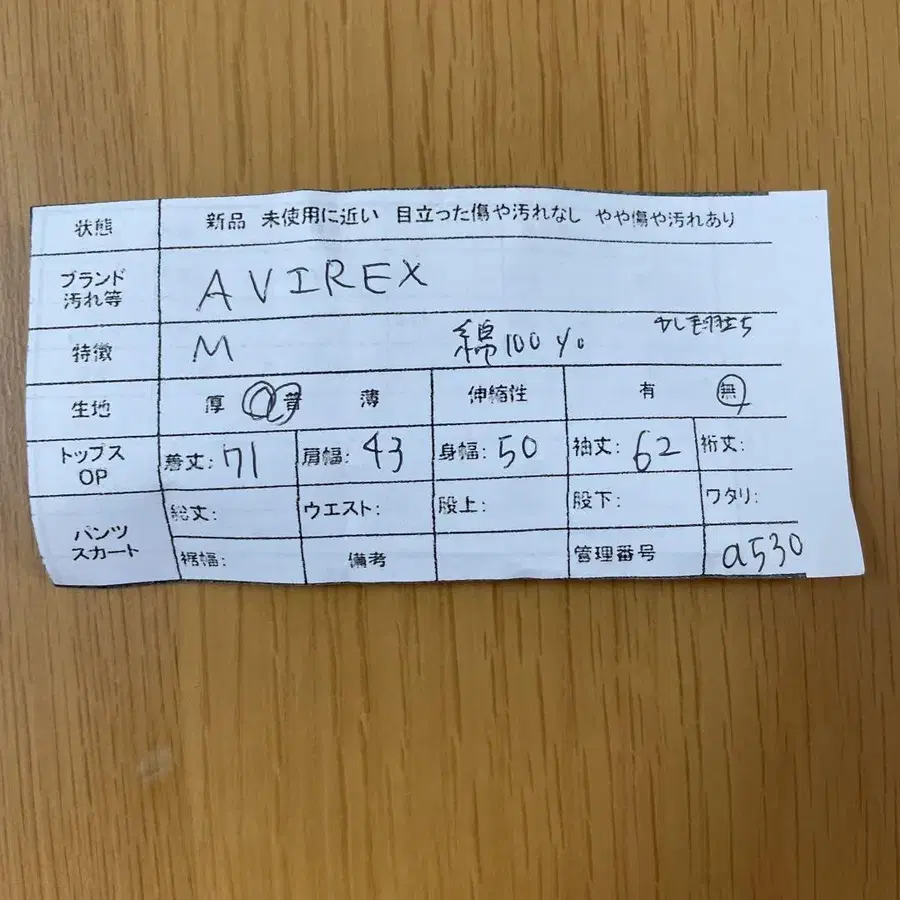 状態 新品 未使用に近い 目立った傷や汚れなし やや傷や汚れあり
ブランド
汚れ等 AVIREX
特徴 M 綿100% 少し毛羽立ち
生地 厚 普 薄 伸縮性 有 無
トップス
OP 着丈:71 肩幅:43 身幅:50 袖丈:62 裄丈:
パンツ
スカート 総丈: ウエスト: 股上: 股下: ワタリ:
裾幅: 備考 管理番号 a530